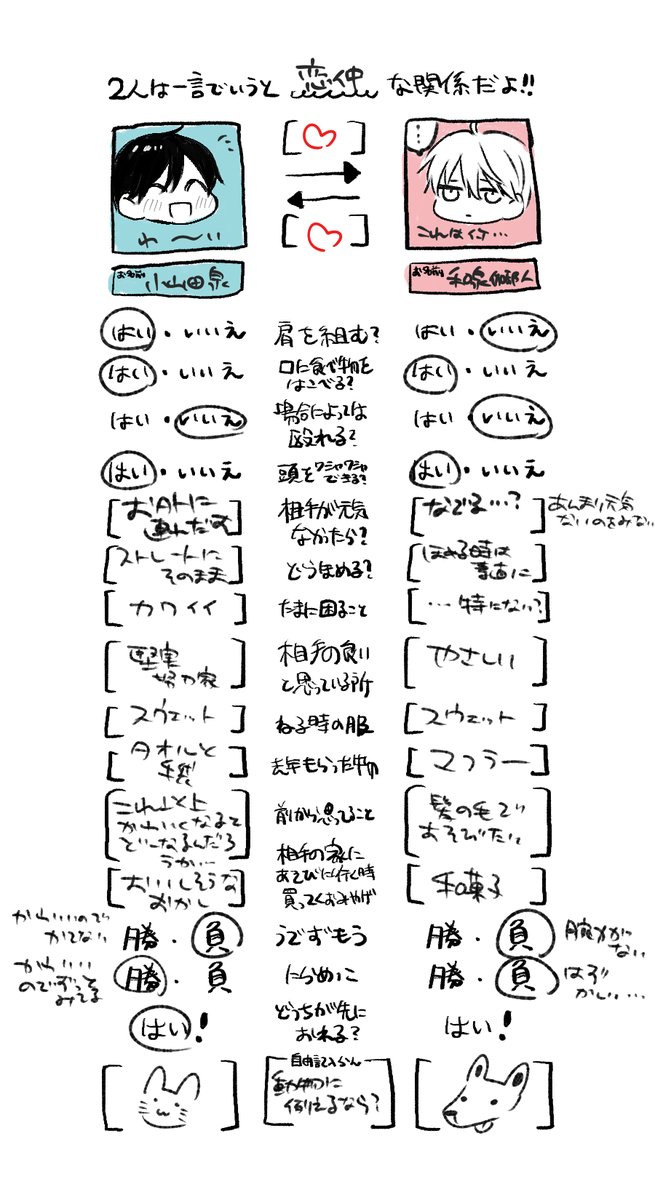 2人は一言でいうと 恋仲 な関係だよ!!
わ〜い
これは行…
お名前 小山田泉
お名前
はい・いいえ 肩を組む? はい・いいえ
はい・いいえ 口に食べ物をはこべる? はい・いいえ
はい・いいえ 場合によっては殴れる? はい・いいえ
はい・いいえ 頭をワシャワシャできる? はい・いいえ
相手が元気なかったら? なでる…? あんまり元気ないのをみない
ストレートにそのまま どうほめる? ほめる時は素直に
カワイイ たまに困ること …特にない?
堅実 努力家 相手の良いと思っている所 やさしい
スウェット ねる時の服 スウェット
タオルと手袋 去年もらった物 マフラー
これ以上かわいくなるとどーなるんだろうか… 前から思ってること 髪の毛であそびたい
おいしそうなおかし 相手の家にあそびに行く時買ってくおみやげ 和菓子
かわいいのでかてない 勝・負 うでずもう 勝・負 腕力がない
かわいいのでずっとみてる 勝・負 にらめっこ 勝・負 はずかしい…
はい! どっちが先におれる? はい!
自由記入らん
動物に例えるなら?